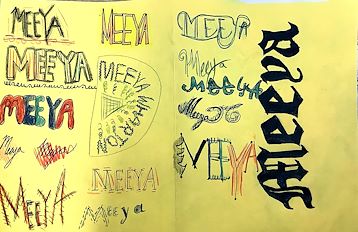 MEEYA
MEEYA
MEEYA
MEEYA WHARTON
MEEYA
Meeya
MEEYA
MEEYA
MEEYA
Meeya
MEEYA
Meeya
MEEYA
Meeya
MEEYA
Meeya